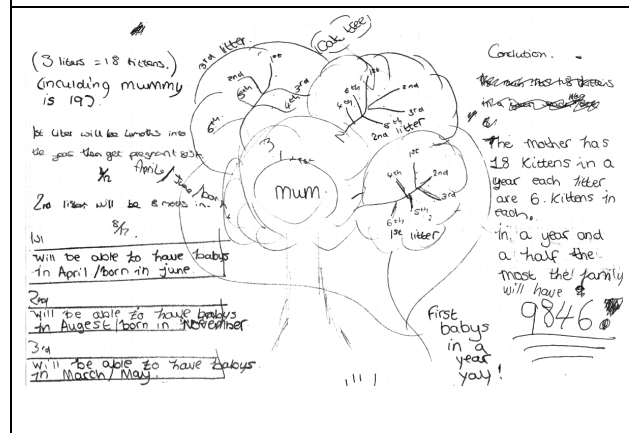 (3 liters = 18 kittens.)
(inculding mummy
is 19).
1st Liter will be 4 moths into
the year then get pregnant
April / June / born
2nd liter will be 8 moths in.
8/12.
1st
will be able to have babys
in April / born in june.
2nd
will be able to have babys
in Augest / born in November
3rd
will be able to have babys
in March / May.
Oak tree
3rd litter.
1st
2nd
3rd
4th
5th
6th
1st
2nd
3rd
4th
5th
6th
2nd litter
3
mum
1st
2nd
3rd
4th
5th
6th
1st litter
first
babys
in a
year
yay!
Conclution.
The mother has
18 Kittens in a
year each litter
are 6. Kittens in
each.
in a year and
a half the
most the family
will have
9846!